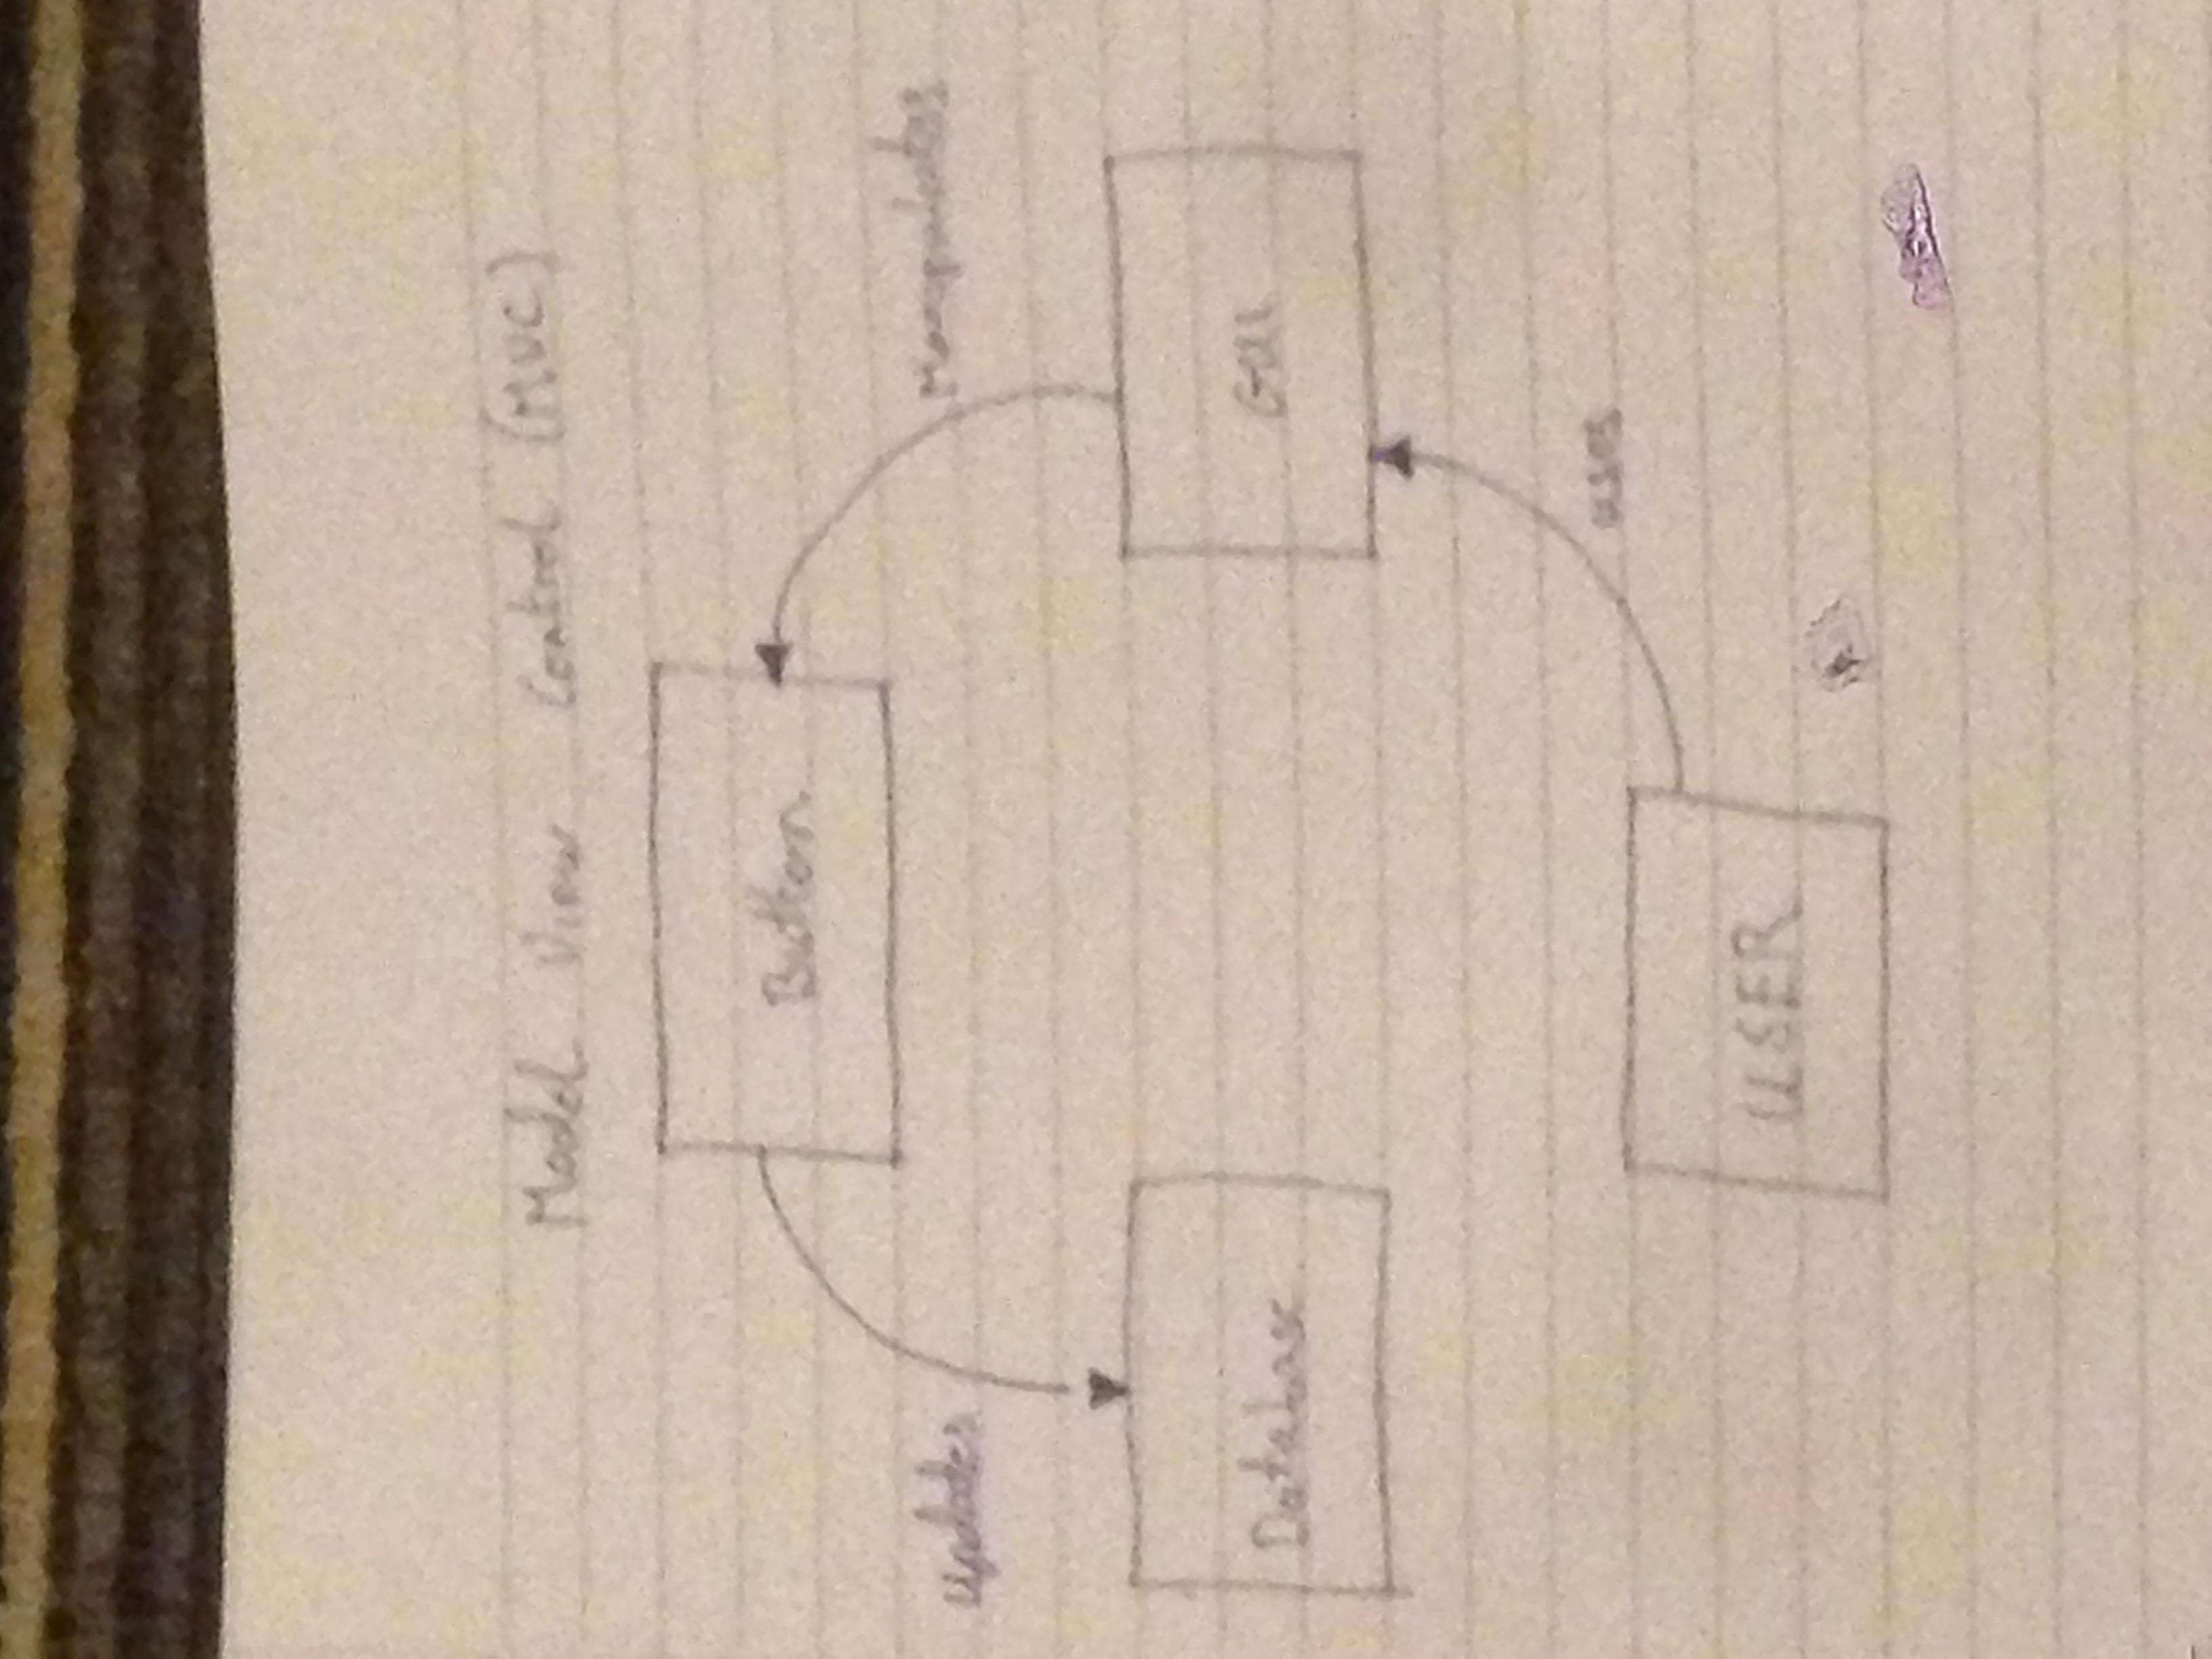 Model View Control (MVC)
Button
Updates
Manipulates
Database
GUI
uses
USER